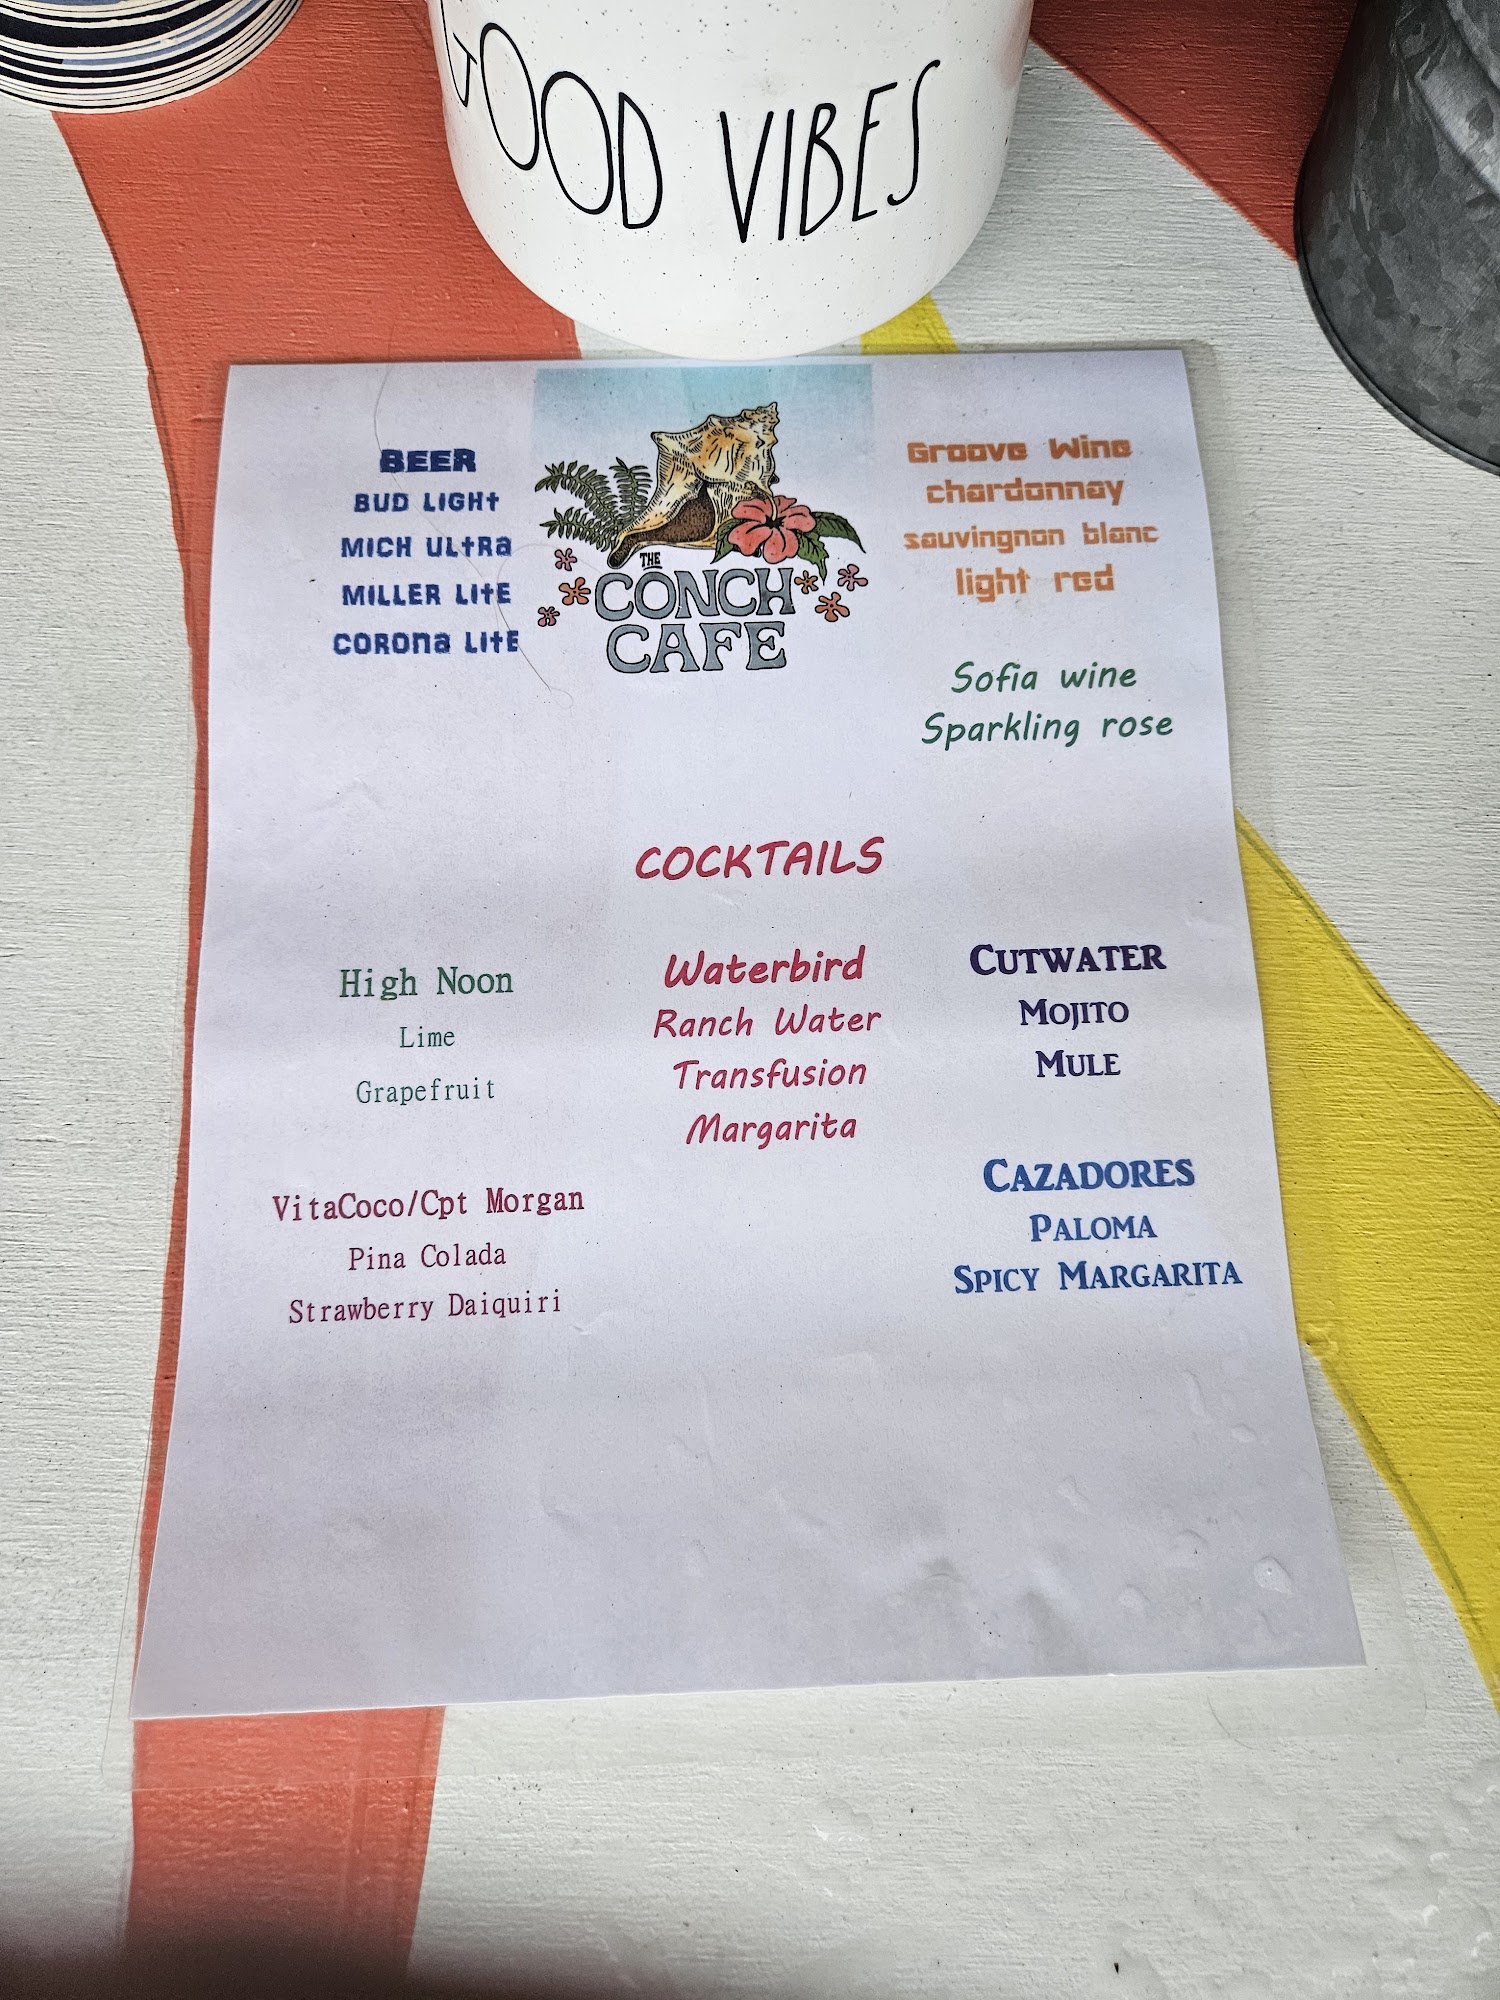 GOOD VIBES
BEER
BUD LIGHt
MICH ULtRa
MILLER LItE
CORONa LItE
THE
CONCH
CAFE
Groove Wine
chardonnay
sauvingnon blanc
light red
Sofia wine
Sparkling rose
COCKTAILS
High Noon
Lime
Grapefruit
VitaCoco/Cpt Morgan
Pina Colada
Strawberry Daiquiri
Waterbird
Ranch Water
Transfusion
Margarita
CUTWATER
MOJITO
MULE
CAZADORES
PALOMA
SPICY MARGARITA